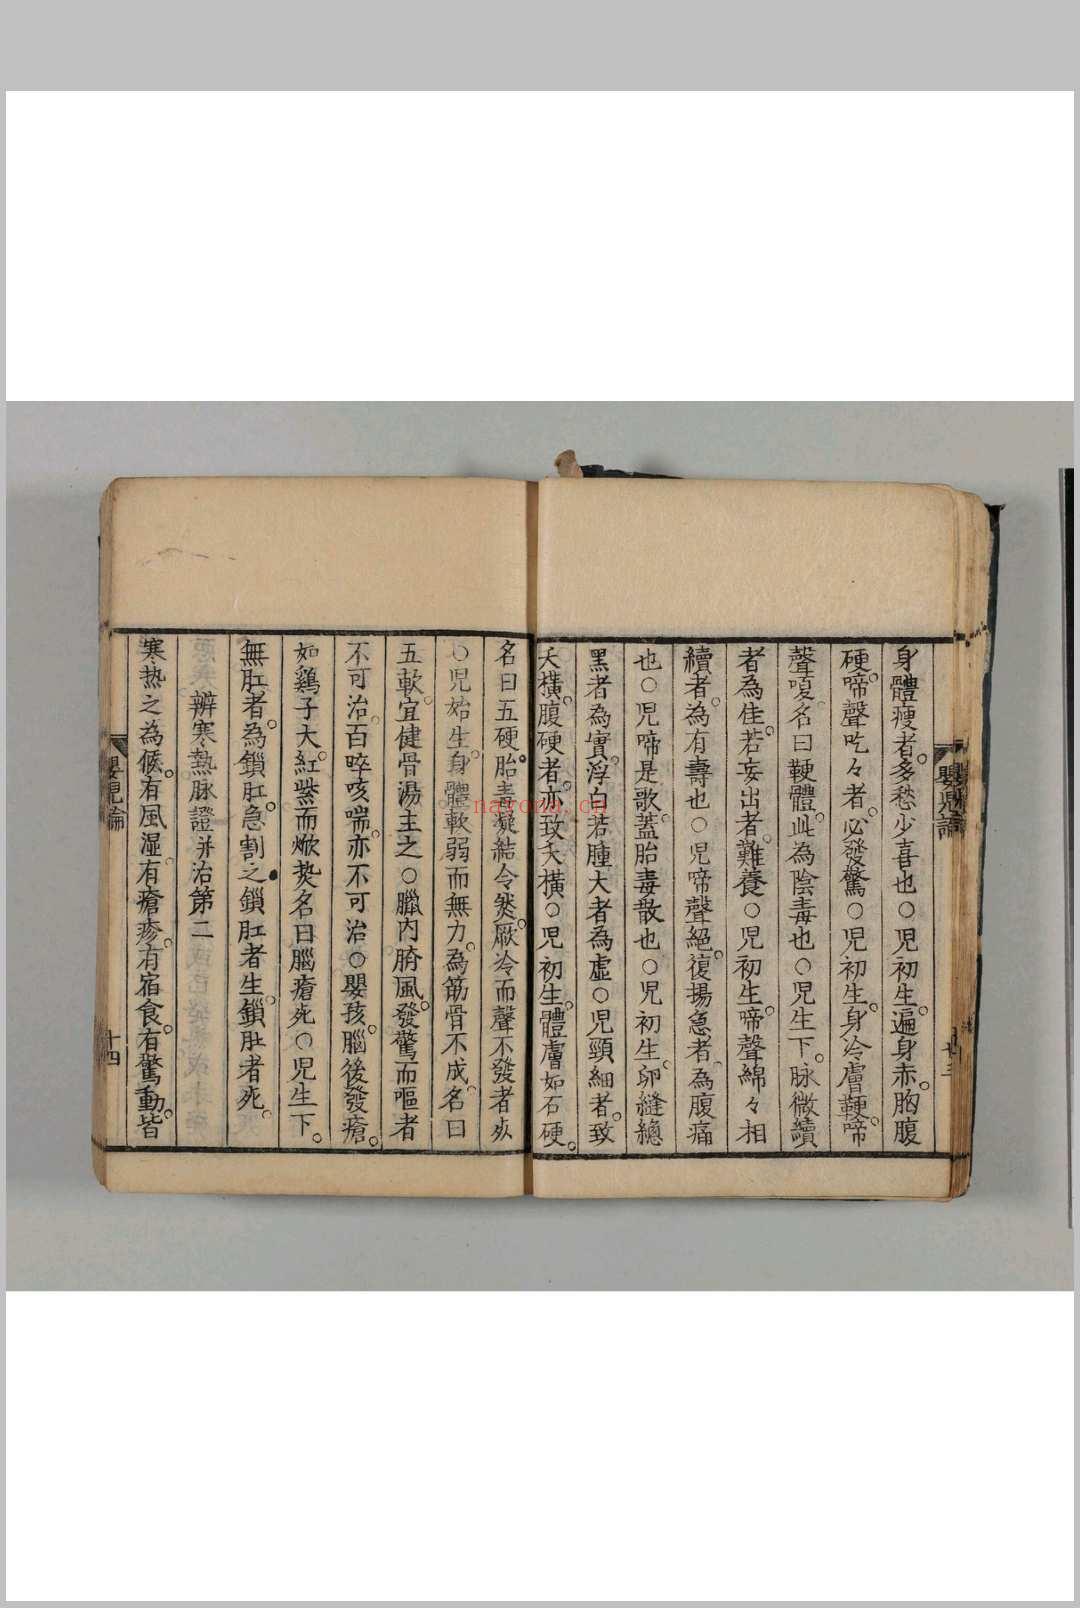 身體瘦者。多愁少喜也○児初生。遍身赤。胸腹
硬。啼聲吃々者。必發驚○児初生。身冷膚鞕。啼
聲嗄。名曰鞕體。此為陰毒也○児生下。脉微續
者為佳。若妄出者。難養○児初生。啼聲綿々相
續者。為有壽也○児啼聲絕。復揚急者。為腹痛
也○児啼是歌。蓋胎毒散也○児初生。卵縫總
黑者為實。浮白若腫大者為虛○児頸細者。致
夭橫。腹硬者。亦致夭橫○児初生。體膚如石硬。
名曰五硬。胎毒凝結令然。厥冷而聲不發者死
○児始生。身體軟弱而無力。為筋骨不成。名曰
五軟。宜健骨湯主之○臘內胯風。發驚而嘔者
不可治。百晬咳喘。亦不可治○嬰孩。腦後發瘡。
如鷄子大。紅紫而焮熱。名曰腦瘡。死○児生下。
無肛者。為鎖肛。急割之。鎖肛者生。鎖肚者死。
辨寒熱脉證并治第二
寒热之為候。有風湿。有瘡疹。有宿食。有驚動。皆
嬰児論
十三
嬰児論
十四
nayona.cn